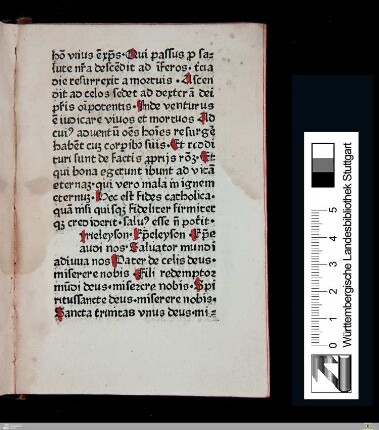 hō vnus ē xp̄s · Qui passus p sa=
lute nr̄a descēdit ad īferos · tcia
die resurrexit a mortuis · Ascen
dit ad celos sedet ad dexterā dei
pr̄is oīpotentis · Inde venturus
ē iudicare viuos et mortuos Ad
cui⁹ aduentū oēs hoīes resurgē
habēt cuz corpib⁹ suis · Et reddi
turi sunt de factis pprijs rōz · Et
qui bona egerunt ibunt ad vitā
eternaz · qui vero mala in ignem
eternuz · Hec est fides catholica ·
quā nisi quisqz fideliter firmiter
qz crediderit · saluus esse nō poterit ·
Kirieleyson Xp̄eleyson Xp̄e
audi nos Saluator mundi
adiuua nos Pater de celis deus ·
miserere nobis · Fili redemptor
mūdi deus · miserere nobis · Spi
ritussancte deus · miserere nobis ·
Sancta trinitas vnus deus · mi=
0 1 2 3 4 5
Württembergische Landesbibliothek Stuttgart